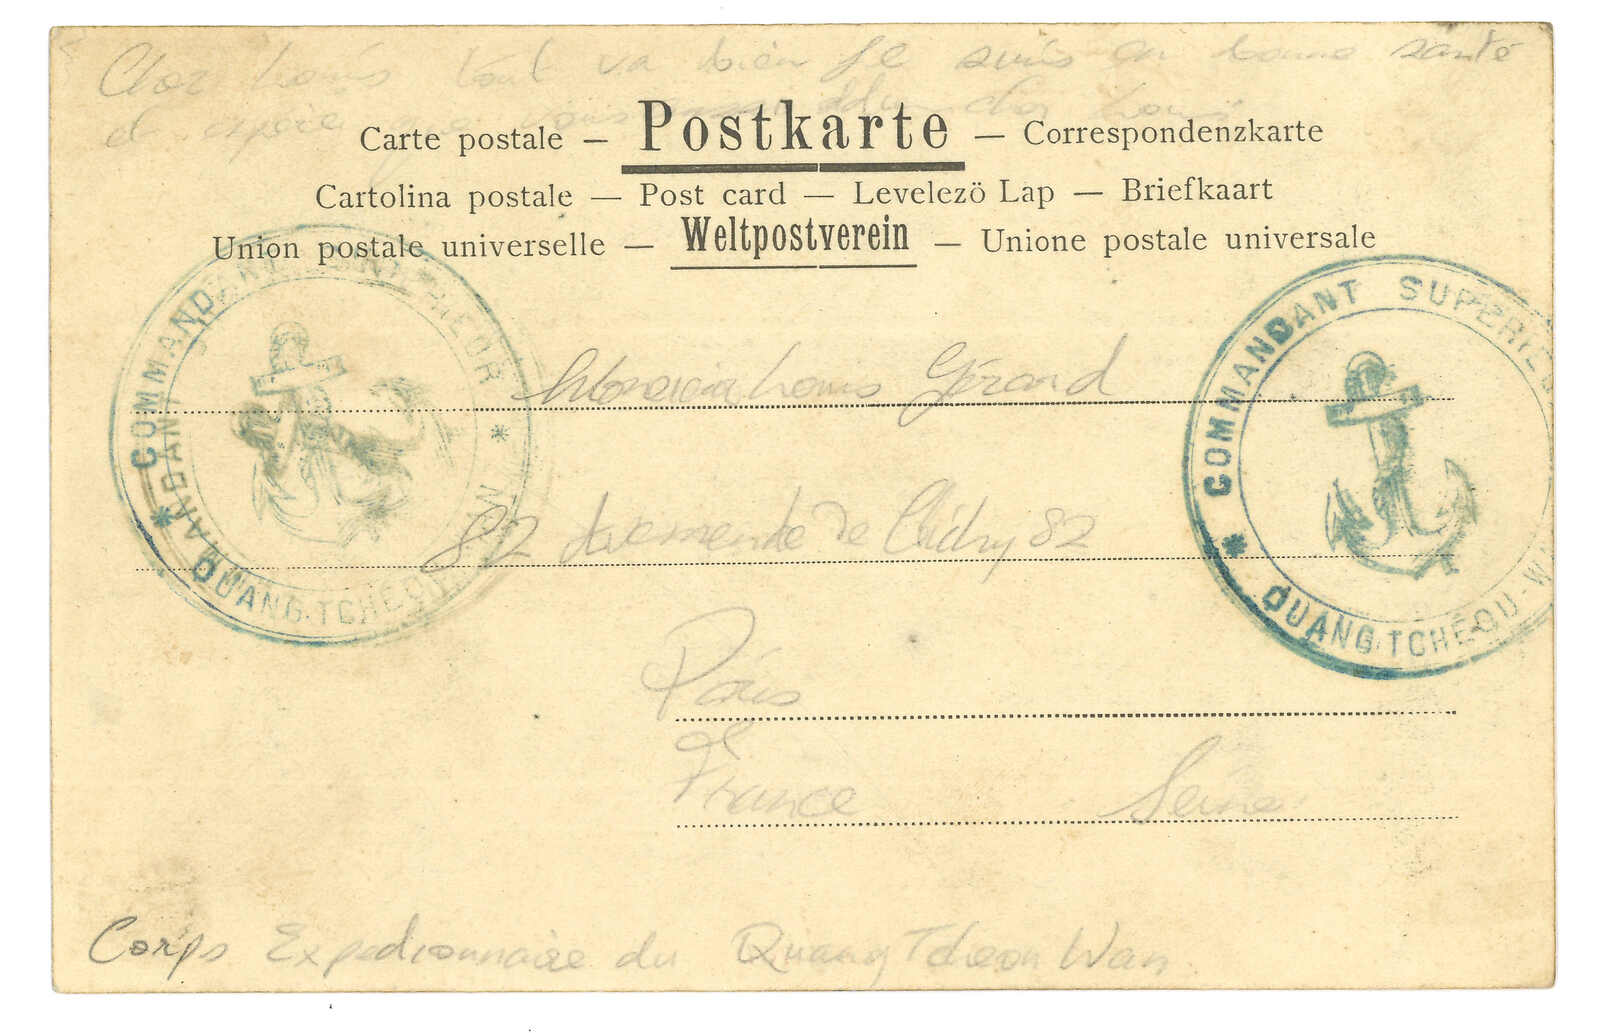 Cher Louis tout va bien Je suis en bonne santé
et espère que vous
Carte postale — Postkarte — Correspondenzkarte
Cartolina postale — Post card — Levelezö Lap — Briefkaart
Union postale universelle — Weltpostverein — Unione postale universale
COMMANDANT SUPERIEUR * QUANG-TCHÉOU-WAN *
COMMANDANT SUPERIEU
* QUANG-TCHÉOU-W
Louis Gérard
82 de Clichy 82
Paris
France Seine
Corps Expedionnaire du Quang Tcheou Wan